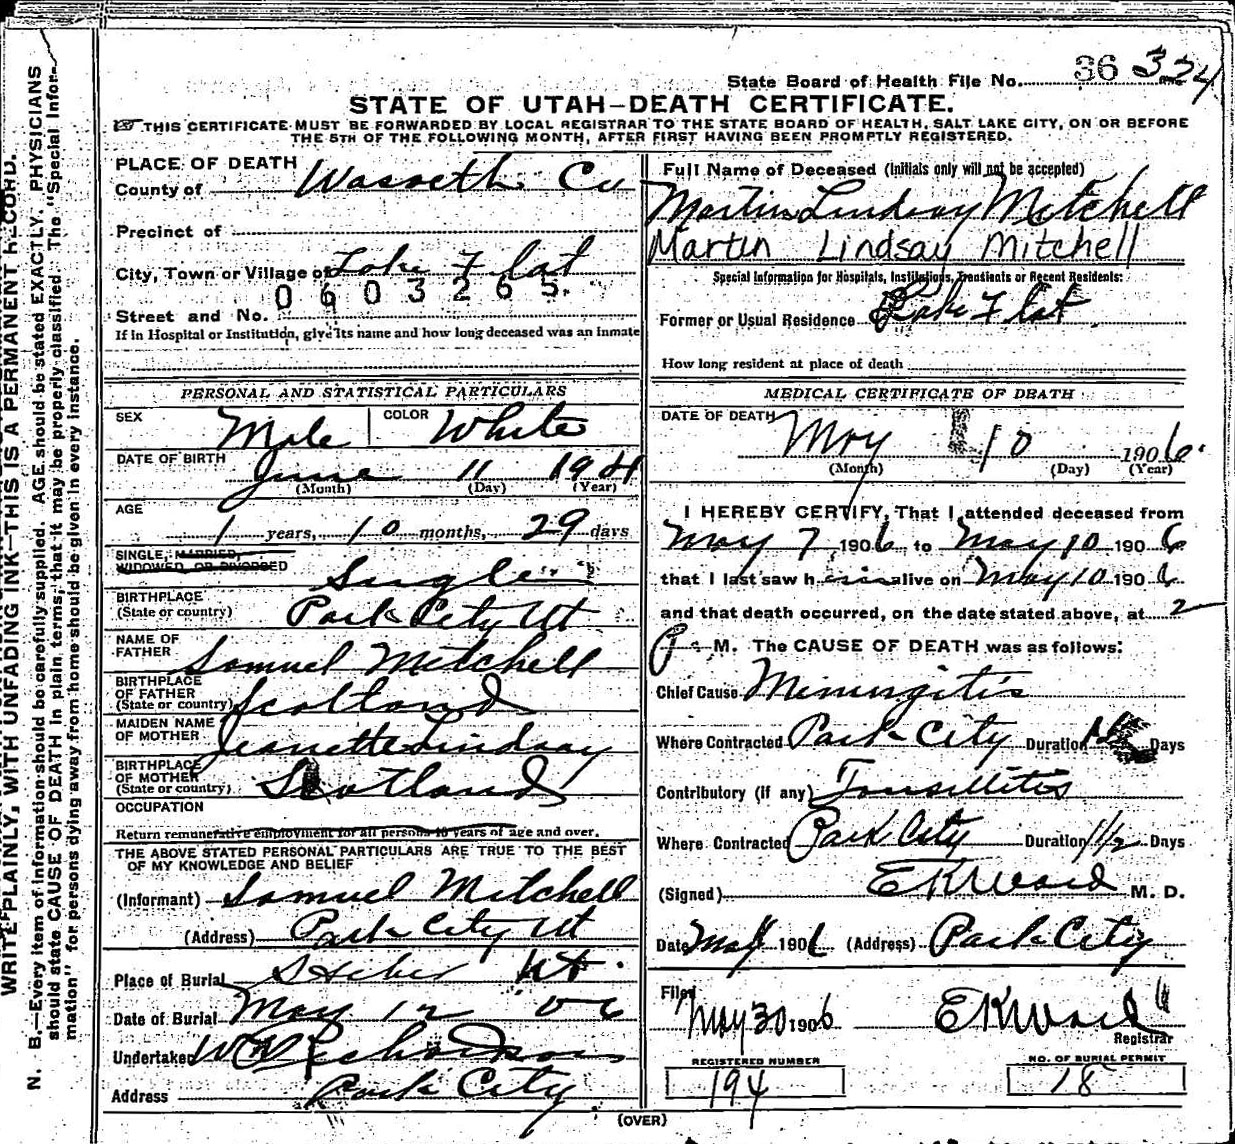 State Board of Health File No. 36 324
STATE OF UTAH—DEATH CERTIFICATE.
THIS CERTIFICATE MUST BE FORWARDED BY LOCAL REGISTRAR TO THE STATE BOARD OF HEALTH, SALT LAKE CITY, ON OR BEFORE
THE 5TH OF THE FOLLOWING MONTH, AFTER FIRST HAVING BEEN PROMPTLY REGISTERED.
WRITE PLAINLY, WITH UNFADING INK—THIS IS A PERMANENT RECORD.
N. B.—Every item of information should be carefully supplied. AGE should be stated EXACTLY. PHYSICIANS
should state CAUSE OF DEATH in plain terms, that it may be properly classified. The "Special Infor-
mation" for persons dying away from home should be given in every instance.
PLACE OF DEATH
County of Wasseth Co
Precinct of
City, Town or Village of Lake Flat
0603265.
Street and No.
If in Hospital or Institution, give its name and how long deceased was an inmate
PERSONAL AND STATISTICAL PARTICULARS
SEX Male COLOR White
DATE OF BIRTH June 11 1904
(Month) (Day) (Year)
AGE
1 years, 10 months, 29 days
SINGLE, MARRIED,
WIDOWED, OR DIVORCED Single
BIRTHPLACE
(State or country) Park City Ut
NAME OF
FATHER Samuel Mitchell
BIRTHPLACE
OF FATHER
(State or country) Scotland
MAIDEN NAME
OF MOTHER Jeanette Lindsay
BIRTHPLACE
OF MOTHER
(State or country) Scotland
OCCUPATION
Return remunerative employment for all persons 10 years of age and over.
THE ABOVE STATED PERSONAL PARTICULARS ARE TRUE TO THE BEST
OF MY KNOWLEDGE AND BELIEF
(Informant) Samuel Mitchell
(Address) Park City Ut
Place of Burial Heber Ut.
Date of Burial May 12 06
Undertaker W Richardson
Address Park City
Full Name of Deceased (Initials only will not be accepted)
Martin Lindsay Mitchell
Martin Lindsay Mitchell
Special Information for Hospitals, Institutions, Transients or Recent Residents:
Former or Usual Residence Lake Flat
How long resident at place of death
MEDICAL CERTIFICATE OF DEATH
DATE OF DEATH May 10 1906.
(Month) (Day) (Year)
I HEREBY CERTIFY, That I attended deceased from
May 7 1906 to May 10 1906
that I last saw him alive on May 10 1906
and that death occurred, on the date stated above, at 2
P. M. The CAUSE OF DEATH was as follows:
Chief Cause Miningitis
Where Contracted Park City Duration Days
Contributory (if any) Tonsillitis
Where Contracted Park City Duration 1 1/2 Days
(Signed) EKWard M. D.
Date May 1906 (Address) Park City
Filed
May 30 1906 EKWard
Registrar
REGISTERED NUMBER
194
NO. OF BURIAL PERMIT
18
(OVER)